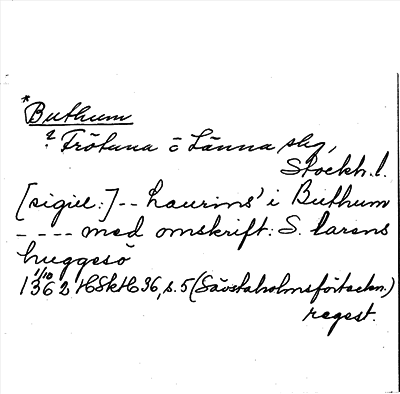 *Buthum
? Frötuna o Länna skg,
Stockh. l.
[sigill:] -- Laurins' i Buthum
---- med omskrift: S. larens
huggesö
1/10
1362 HSkH 36, s. 5 (Sävstaholmsförteckn.)
regest.